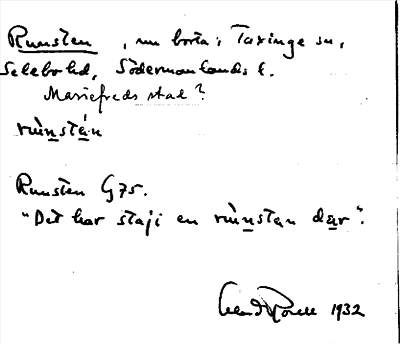 Runsten, nu borta, Taxinge sn,
Selebo hd, Södermanlands l.
Mariefreds stad?
rùnstán
Runsten G75.
"Det har staji en rùnstan dar".
1932